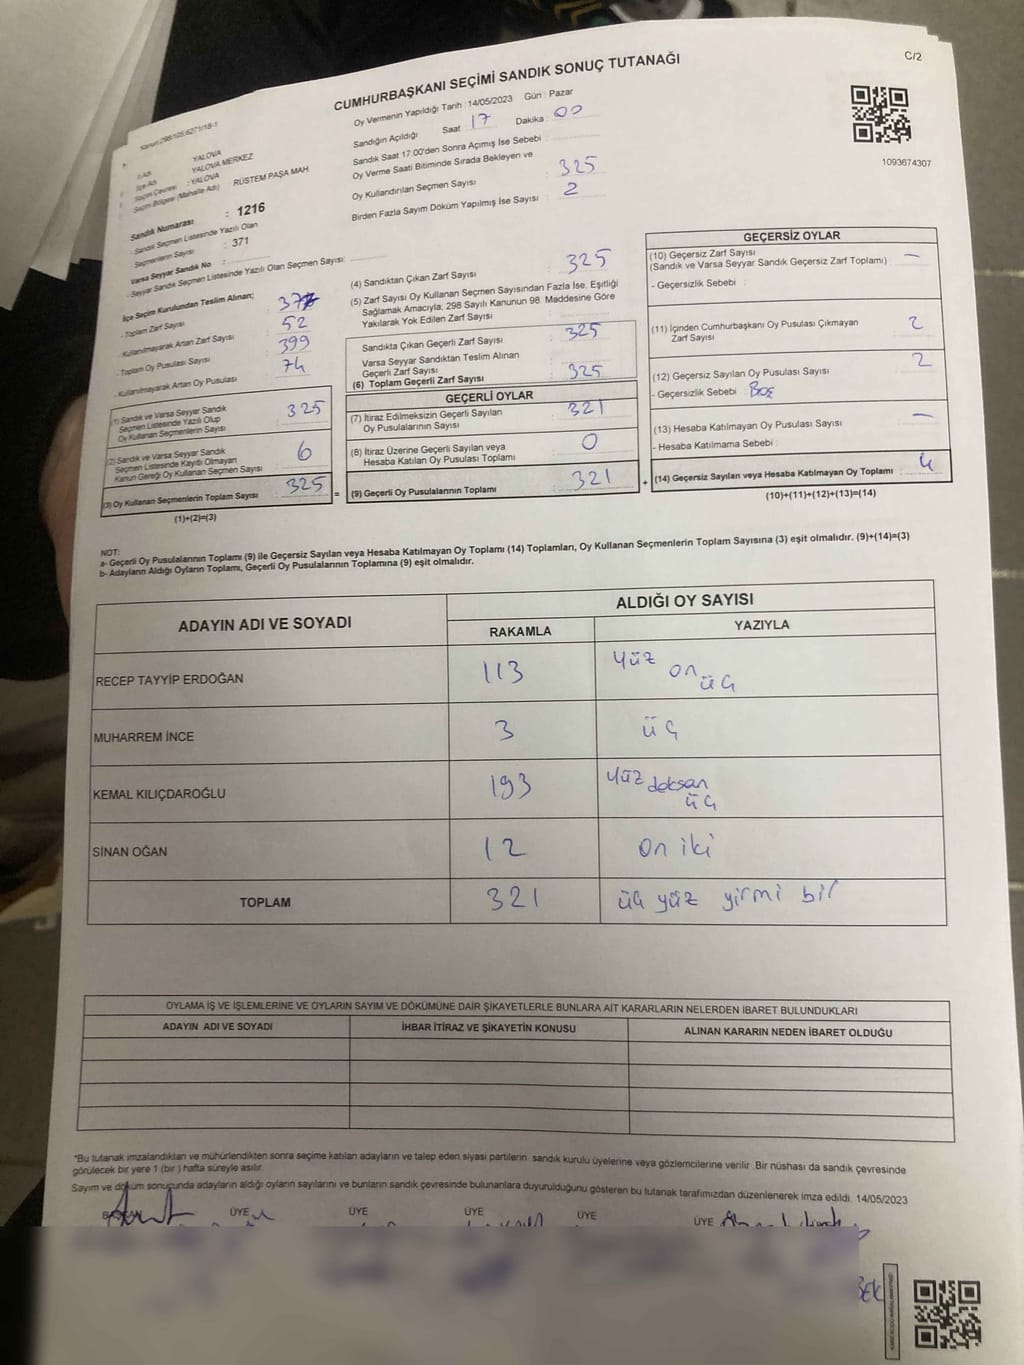 C/2
CUMHURBAŞKANI SEÇİMİ SANDIK SONUÇ TUTANAĞI
Kanun:298/105;6271/18-1
Oy Vermenin Yapıldığı Tarih : 14/05/2023 Gün : Pazar
Sandığın Açıldığı Saat 17 Dakika 00
Sandık Saat 17.00'den Sonra Açımış İse Sebebi
Oy Verme Saati Bitiminde Sırada Bekleyen ve
Oy Kullandırılan Seçmen Sayısı 325
Birden Fazla Sayım Döküm Yapılmış İse Sayısı : 2
1093674307
İl Adı YALOVA
İlçe Adı YALOVA MERKEZ
Seçim Çevresi : YALOVA
Seçim Bölgesi (Mahalle Adı) RÜSTEM PAŞA MAH
Sandık Numarası : 1216
- Sandık Seçmen Listesinde Yazılı Olan
Seçmenlerin Sayısı : 371
Varsa Seyyar Sandık No :
- Seyyar Sandık Seçmen Listesinde Yazılı Olan Seçmen Sayısı:
İlçe Seçim Kurulundan Teslim Alınan;
- Toplam Zarf Sayısı
- Kullanılmayarak Artan Zarf Sayısı 52
- Toplam Oy Pusulası Sayısı 399
- Kullanılmayarak Artan Oy Pusulası 74
(1) Sandık ve Varsa Seyyar Sandık
Seçmen Listesinde Yazılı Olup
Oy Kullanan Seçmenlerin Sayısı 325
(2) Sandık ve Varsa Seyyar Sandık
Seçmen Listesinde Kayıtlı Olmayan
Kanun Gereği Oy Kullanan Seçmen Sayısı 6
(3) Oy Kullanan Seçmenlerin Toplam Sayısı 325 =
(1)+(2)=(3)
(4) Sandıktan Çıkan Zarf Sayısı : 325
(5) Zarf Sayısı Oy Kullanan Seçmen Sayısından Fazla İse, Eşitliği
Sağlamak Amacıyla; 298 Sayılı Kanunun 98. Maddesine Göre
Yakılarak Yok Edilen Zarf Sayısı
Sandıkta Çıkan Geçerli Zarf Sayısı : 325
Varsa Seyyar Sandıktan Teslim Alınan
Geçerli Zarf Sayısı
(6) Toplam Geçerli Zarf Sayısı 325
GEÇERLİ OYLAR
(7) İtiraz Edilmeksizin Geçerli Sayılan
Oy Pusulalarının Sayısı : 321
(8) İtiraz Üzerine Geçerli Sayılan veya
Hesaba Katılan Oy Pusulası Toplamı : 0
(9) Geçerli Oy Pusulalarının Toplamı : 321 +
GEÇERSİZ OYLAR
(10) Geçersiz Zarf Sayısı
(Sandık ve Varsa Seyyar Sandık Geçersiz Zarf Toplamı) : —
- Geçersizlik Sebebi :
(11) İçinden Cumhurbaşkanı Oy Pusulası Çıkmayan
Zarf Sayısı 2
(12) Geçersiz Sayılan Oy Pusulası Sayısı 2
- Geçersizlik Sebebi : Boş
(13) Hesaba Katılmayan Oy Pusulası Sayısı : —
- Hesaba Katılmama Sebebi :
(14) Geçersiz Sayılan veya Hesaba Katılmayan Oy Toplamı : 4
(10)+(11)+(12)+(13)=(14)
NOT:
a- Geçerli Oy Pusulalarının Toplamı (9) ile Geçersiz Sayılan veya Hesaba Katılmayan Oy Toplamı (14) Toplamları, Oy Kullanan Seçmenlerin Toplam Sayısına (3) eşit olmalıdır. (9)+(14)=(3)
b- Adayların Aldığı Oyların Toplamı, Geçerli Oy Pusulalarının Toplamına (9) eşit olmalıdır.
ADAYIN ADI VE SOYADI
ALDIĞI OY SAYISI
RAKAMLA YAZIYLA
RECEP TAYYİP ERDOĞAN 113 yüz on üç
MUHARREM İNCE 3 üç
KEMAL KILIÇDAROĞLU 193 yüz doksan üç
SİNAN OĞAN 12 on iki
TOPLAM 321 üç yüz yirmi bir
OYLAMA İŞ VE İŞLEMLERİNE VE OYLARIN SAYIM VE DÖKÜMÜNE DAİR ŞİKAYETLERLE BUNLARA AİT KARARLARIN NELERDEN İBARET BULUNDUKLARI
ADAYIN ADI VE SOYADI İHBAR İTİRAZ VE ŞİKAYETİN KONUSU ALINAN KARARIN NEDEN İBARET OLDUĞU
*Bu tutanak imzalandıktan ve mühürlendikten sonra seçime katılan adayların ve talep eden siyasi partilerin sandık kurulu üyelerine veya gözlemcilerine verilir ,Bir nüshası da sandık çevresinde
görülecek bir yere 1 (bir ) hafta süreyle asılır.
Sayım ve döküm sonucunda adayların aldığı oyların sayılarını ve bunların sandık çevresinde bulunanlara duyurulduğunu gösteren bu tutanak tarafımızdan düzenlenerek imza edildi. 14/05/2023
BAŞKAN ÜYE ÜYE ÜYE ÜYE ÜYE